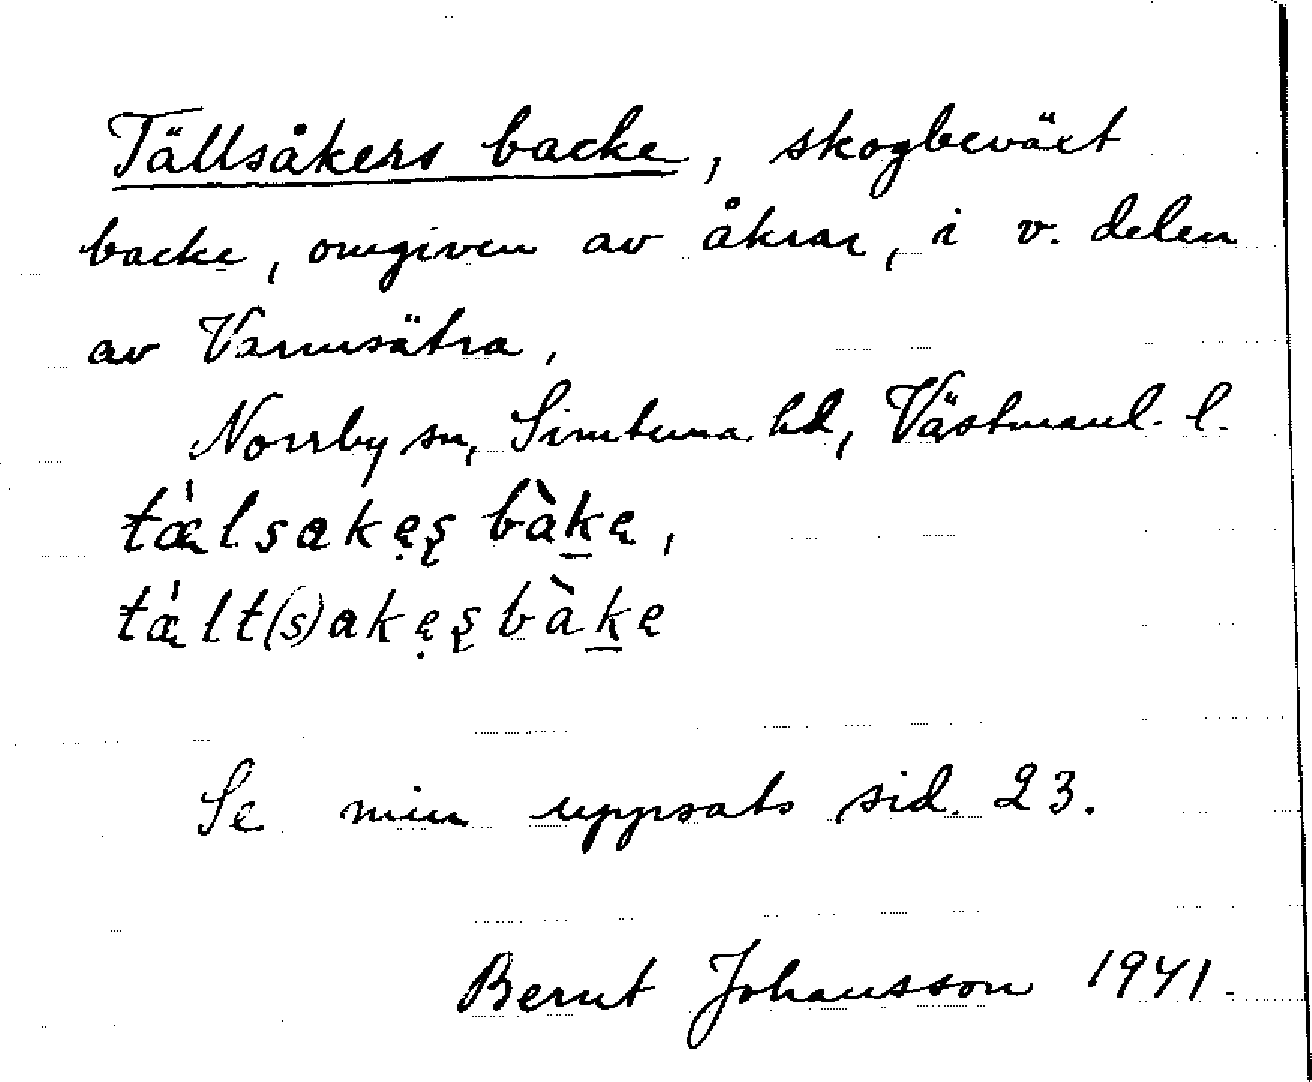 Tällsåkers backe, skogbeväxt
backe, omgiven av åkrar, i v. delen
av Varmsätra,
Norrby sn, Simtuna hd, Västmanl. l.
tǽlsakęş bàkę,
tǽlt(s)akęşbàkę
Se min uppsats sid. 23.
Bernt Johansson 1941.